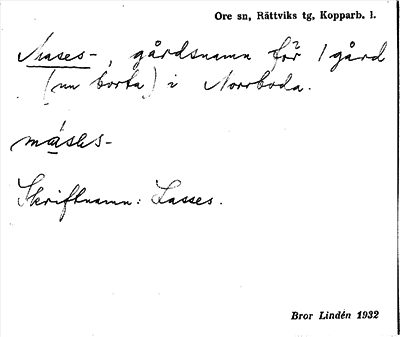 Ore sn, Rättviks tg, Kopparb. l.
Mases-, gårdsnamn för 1 gård
(nu borta) i Norrboda.
máses-
Skriftnamn: Lasses.
Bror Lindén 1932